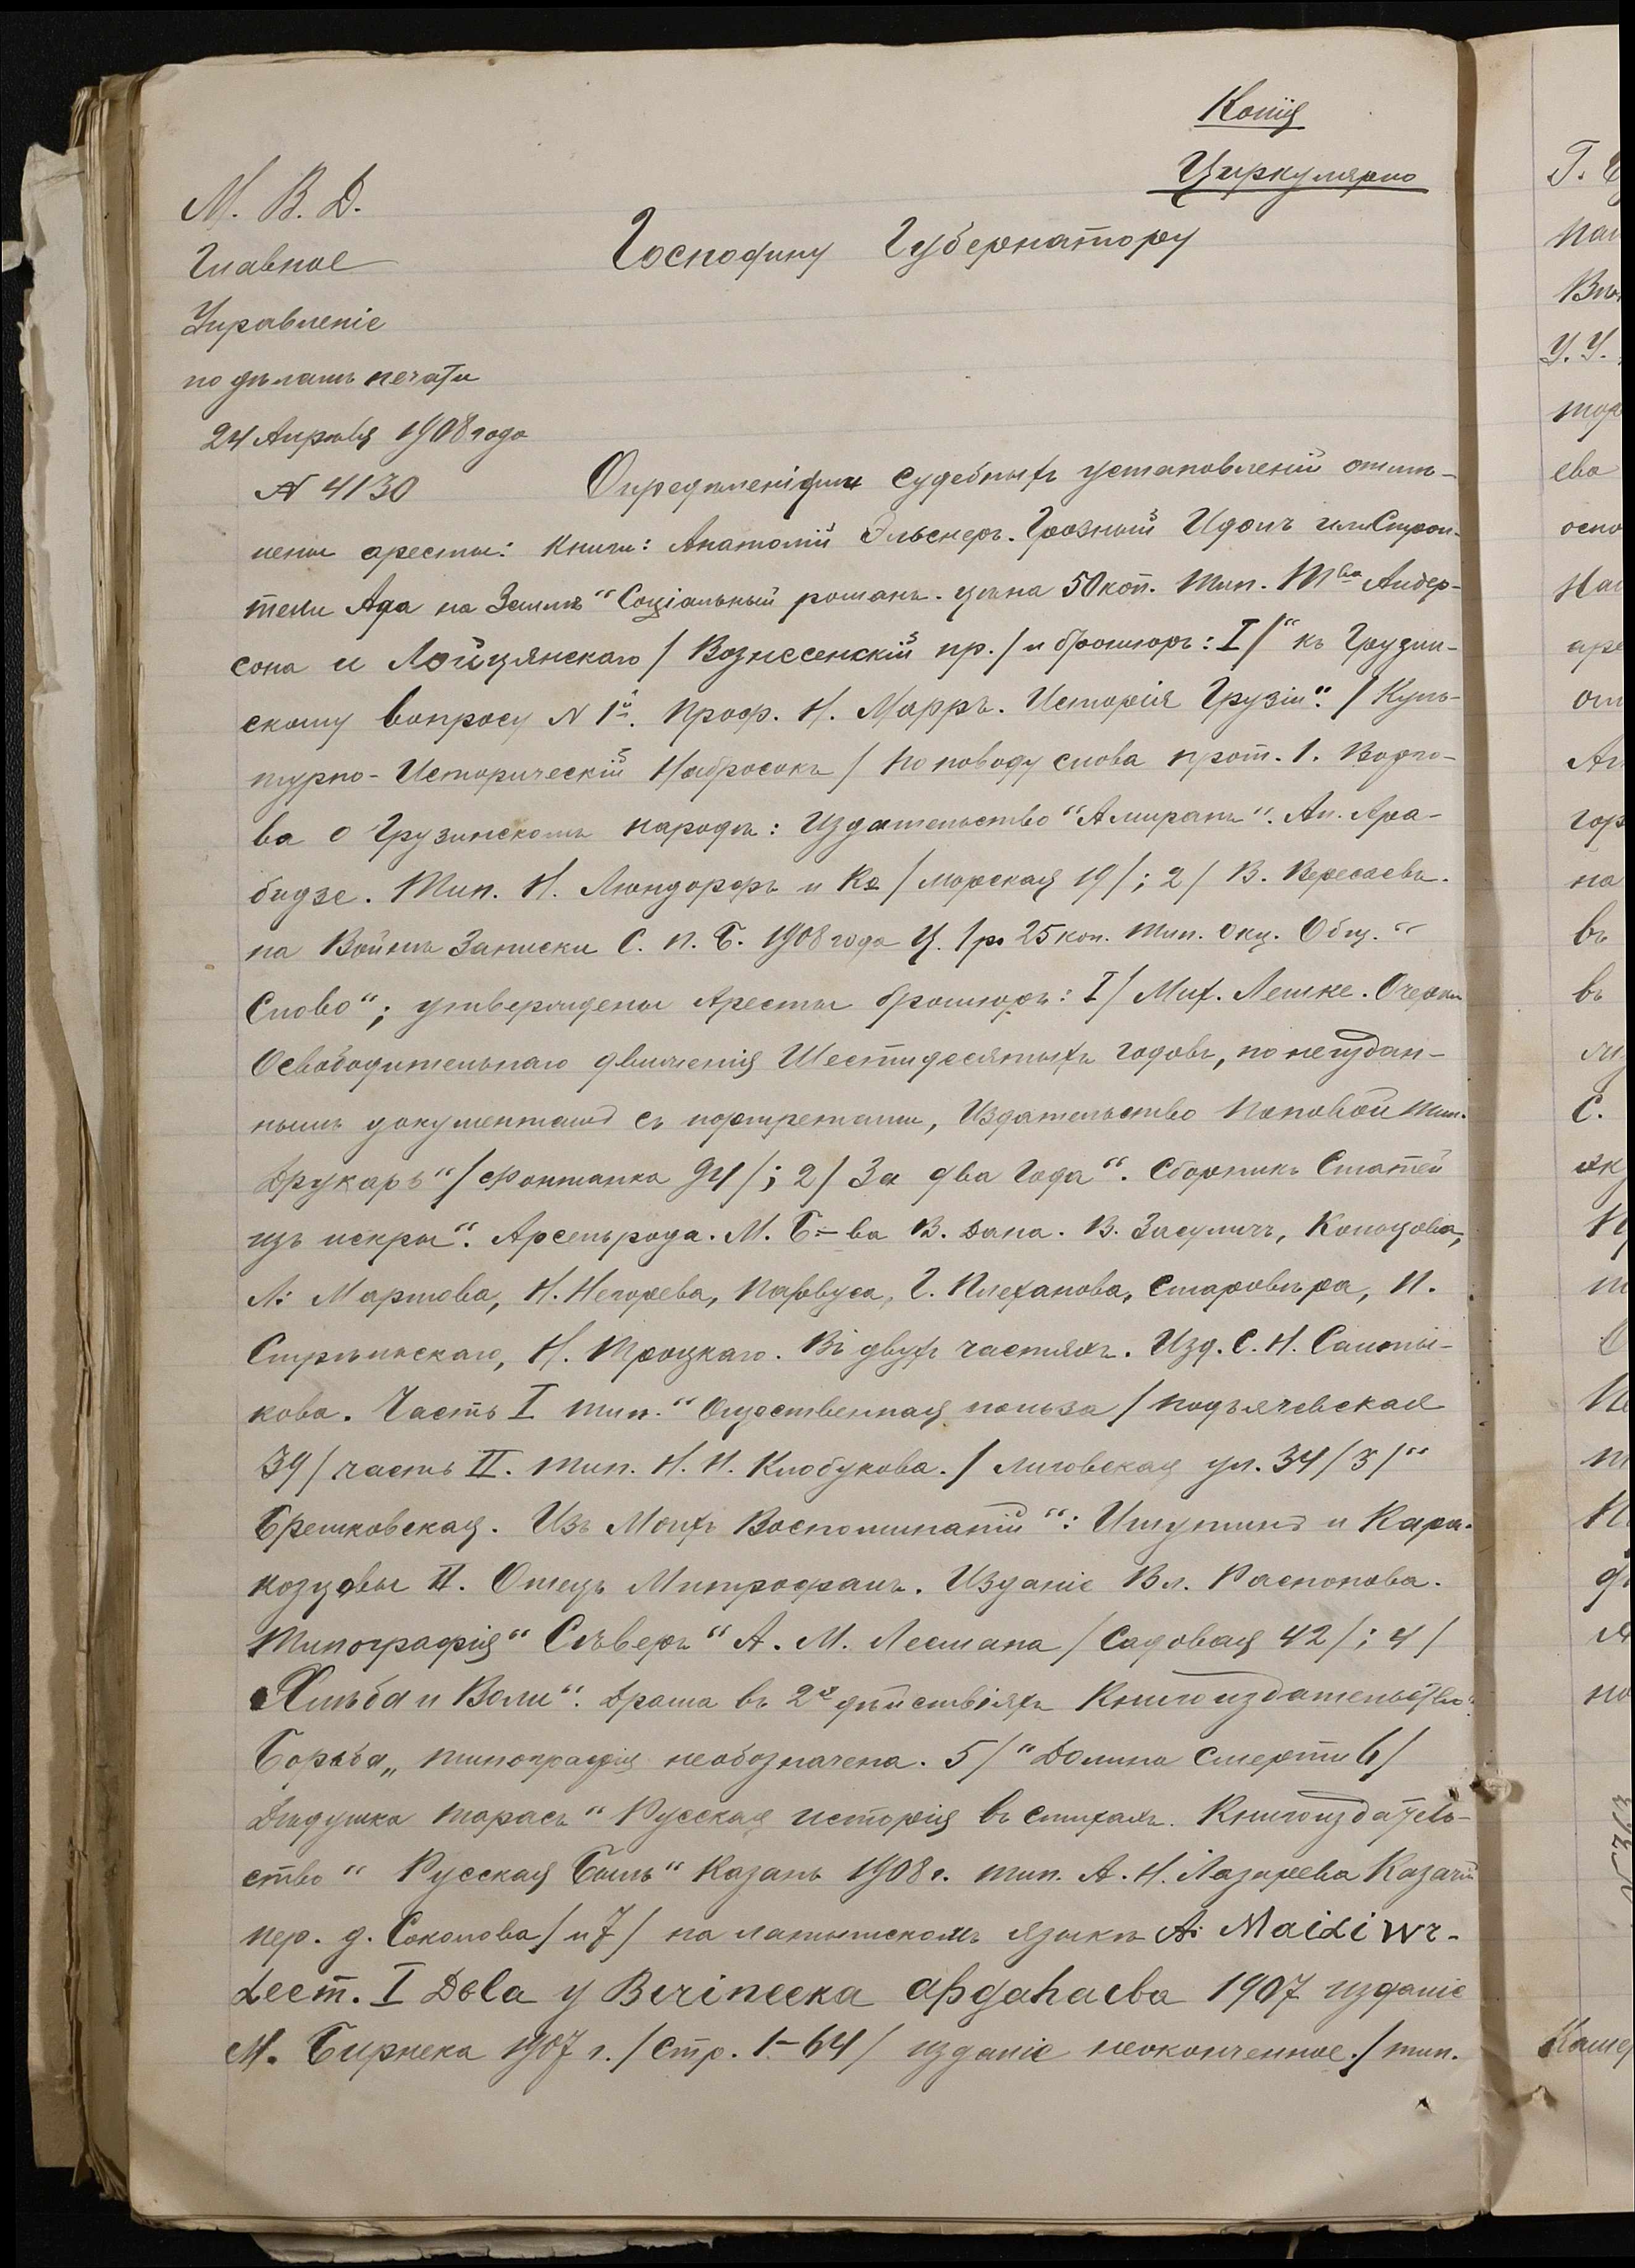 Копія
Циркулярно
М. В. Д.
Главное
Управленіе
по дѣламъ печати
24 Апрѣля 1908 года
N 4130
Господину Губернатору
Опредѣленіями судебныхъ установленій отмѣ-
нены аресты: книги: Анатолій Эльснеръ. Грозный Идолъ или Строи-
тели Ада на Землѣ" Соціальный романъ. цѣна 50 коп. Тип. Тва Андер-
сона и Лойцянскаго / Вознесенскій пр. / и брошюръ: I/ "къ Грузин-
скому вопросу N 1й. Проф. Н. Марръ. Исторія Грузіи". / Куль-
турно-Историческій Набросокъ / По поводу слова прот. I. Восто-
ва о Грузинскомъ народѣ: Издательство "Амирань". Ап. Ара-
бидзе. Тип. Н. Люндорфъ и Ко / Морская 19/; 2/ В. Вересаевъ.
на Войнѣ Записки С. П. Б. 1908 года Ц. 1 р. 25 коп. Тип. Акц. Общ. "
Слово"; утверждены Аресты брошюръ: I/ Мих. Лемке. Очерки
Освободительнаго движенія Шестидесятыхъ годовъ, по неиздан-
нымъ документамъ съ портретами, Издательство Поповой Тип.
Друкарь" / Фонтанка 94/; 2/ За два Года". Сборникъ Статей
изъ искры". Арсеньрода. М. Б-ва В. Дана. В. Засуличъ, Кольцова,
Л: Мартова, Н. Негорева, Парвуса, Г. Плеханова, Старовѣра, П.
Стрѣльскаго, Н. Троцкаго. Въ двухъ частяхъ. Изд. С. Н. Салты-
кова. Часть I тип. "Općественная польза / Подъяческая
39/ часть II. тип. Н. Н. Клобукова. / Лиговская ул. 34/3/"
Брешковская. Изъ Моихъ Воспоминаній": Ишутинъ и Кара-
козовы II. Отецъ Митрофанъ. Изданіе Вл. Распопова.
Типографія "Сѣверъ" А. М. Лесмана / Садовая 42/; 4/
Хлѣба и Воли". Драма въ 2хъ дѣйствіяхъ Книгоиздательство
Борьба„ типографія необозначена. 5/ "Долина Смерти 6/
Дѣдушка Тарасъ" Русская исторія въ стихахъ. Книгоиздатель-
ство "Русская Быль" Казань 1908 г. тип. А. Н. Лазарева Казачій
пер. д. Соколова / и 7/ на латышскомъ языкѣ
1907 изданіе
М. Бирнека 1907 г. / Стр. 1-64/ изданіе неоконченное. / тип.